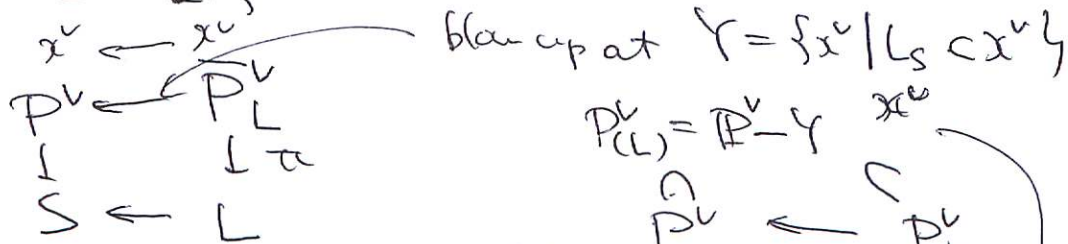 x^∨ ← x^∨ blow up at Y = {x^∨ | L_S ⊂ x^∨}
P^∨ ← P^∨_L P^∨_(L) = P^∨ − Y x^∨
↓ ↓ π ∩ ⊂
S ← L P^∨ ← P^∨